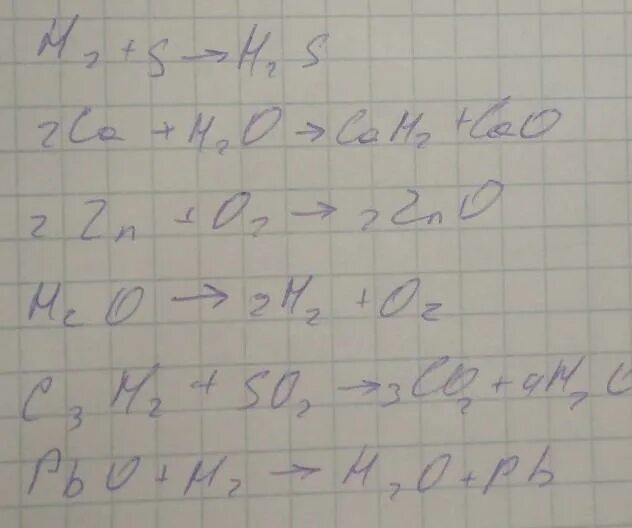 H₂ + S → H₂S
2Ca + H₂O → CaH₂ + CaO
2Zn + O₂ → 2ZnO
H₂O → 2H₂ + O₂
C₃H₂ + 5O₂ → 3CO₂ + 4H₂O
PbO + H₂ → H₂O + Pb